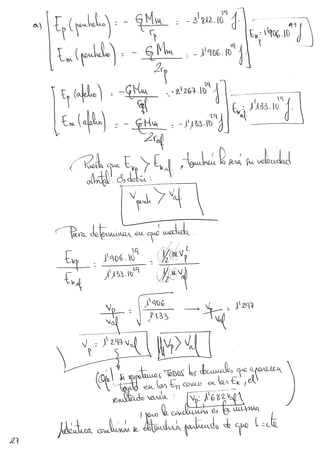 a) E_p (perihelio) = - GMm / r_p = - 3'812.10^29 J.
E_m (perihelio) = - GMm / 2r_p = - 1'906.10^29 J.
E_kp = 1'906.10^29 J.
E_p (afelio) = - GMm / r_af = - 2'267.10^29 J.
E_m (afelio) = - GMm / 2r_af = - 1'133.10^29 J.
E_k af = 1'133.10^29 J.
Puesto que E_kp > E_k af, también lo será su velocidad
orbital. Es decir:
V_perih > V_af.
Para determinar en qué medida:
E_kp / E_k af = 1'906.10^29 / 1'133.10^29 = ½ m v_p² / ½ m v_af²
v_p / v_af = √ 1'906 / 1'133 → v_p / v_af = 1'297
v_p = 1'297 v_af V_p > V_af
(Ojo! si respetamos TODOS los decimales que aparecen
tanto en las E_m como en las E_k, el
resultado varía: V_p = 1'682 v_af
, pero la conclusión es la misma
Idéntica conclusión se obtendría partiendo de que L = cte
27